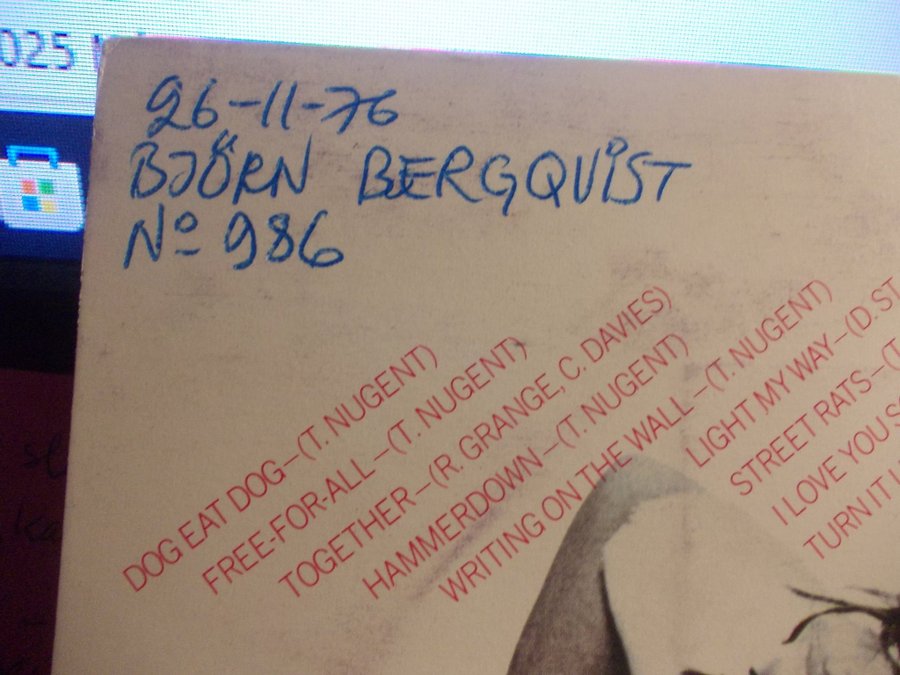 025
26-11-76
BJÖRN BERGQVIST
Nº 986
DOG EAT DOG–(T. NUGENT)
FREE-FOR-ALL–(T. NUGENT)
TOGETHER–(R. GRANGE, C. DAVIES)
HAMMERDOWN–(T. NUGENT)
WRITING ON THE WALL–(T. NUGENT)
LIGHT MY WAY–(D. ST
STREET RATS–(T.
I LOVE YOU S
TURN IT